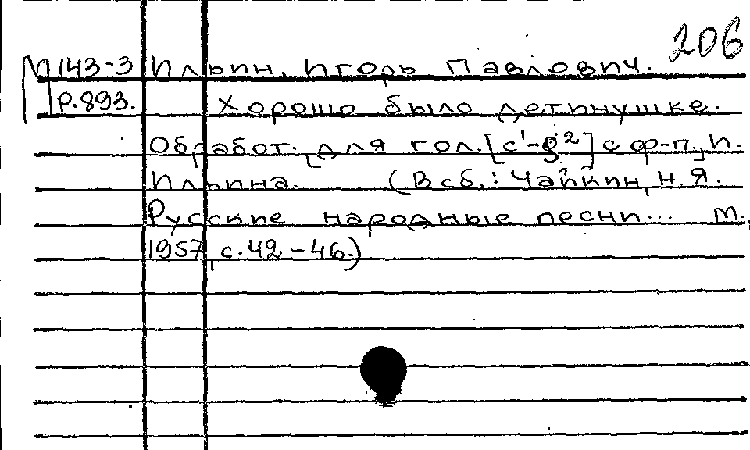 206
М143-3 Ильин, Игорь Павлович.
Р.893. Хорошо было детинушке.
Обработ. [для гол. [c¹-g²] с ф-п.] И.
Ильина. (В сб.: Чайкин, Н.Я.
Русские народные песни... М.,
1957, с.42-46.)